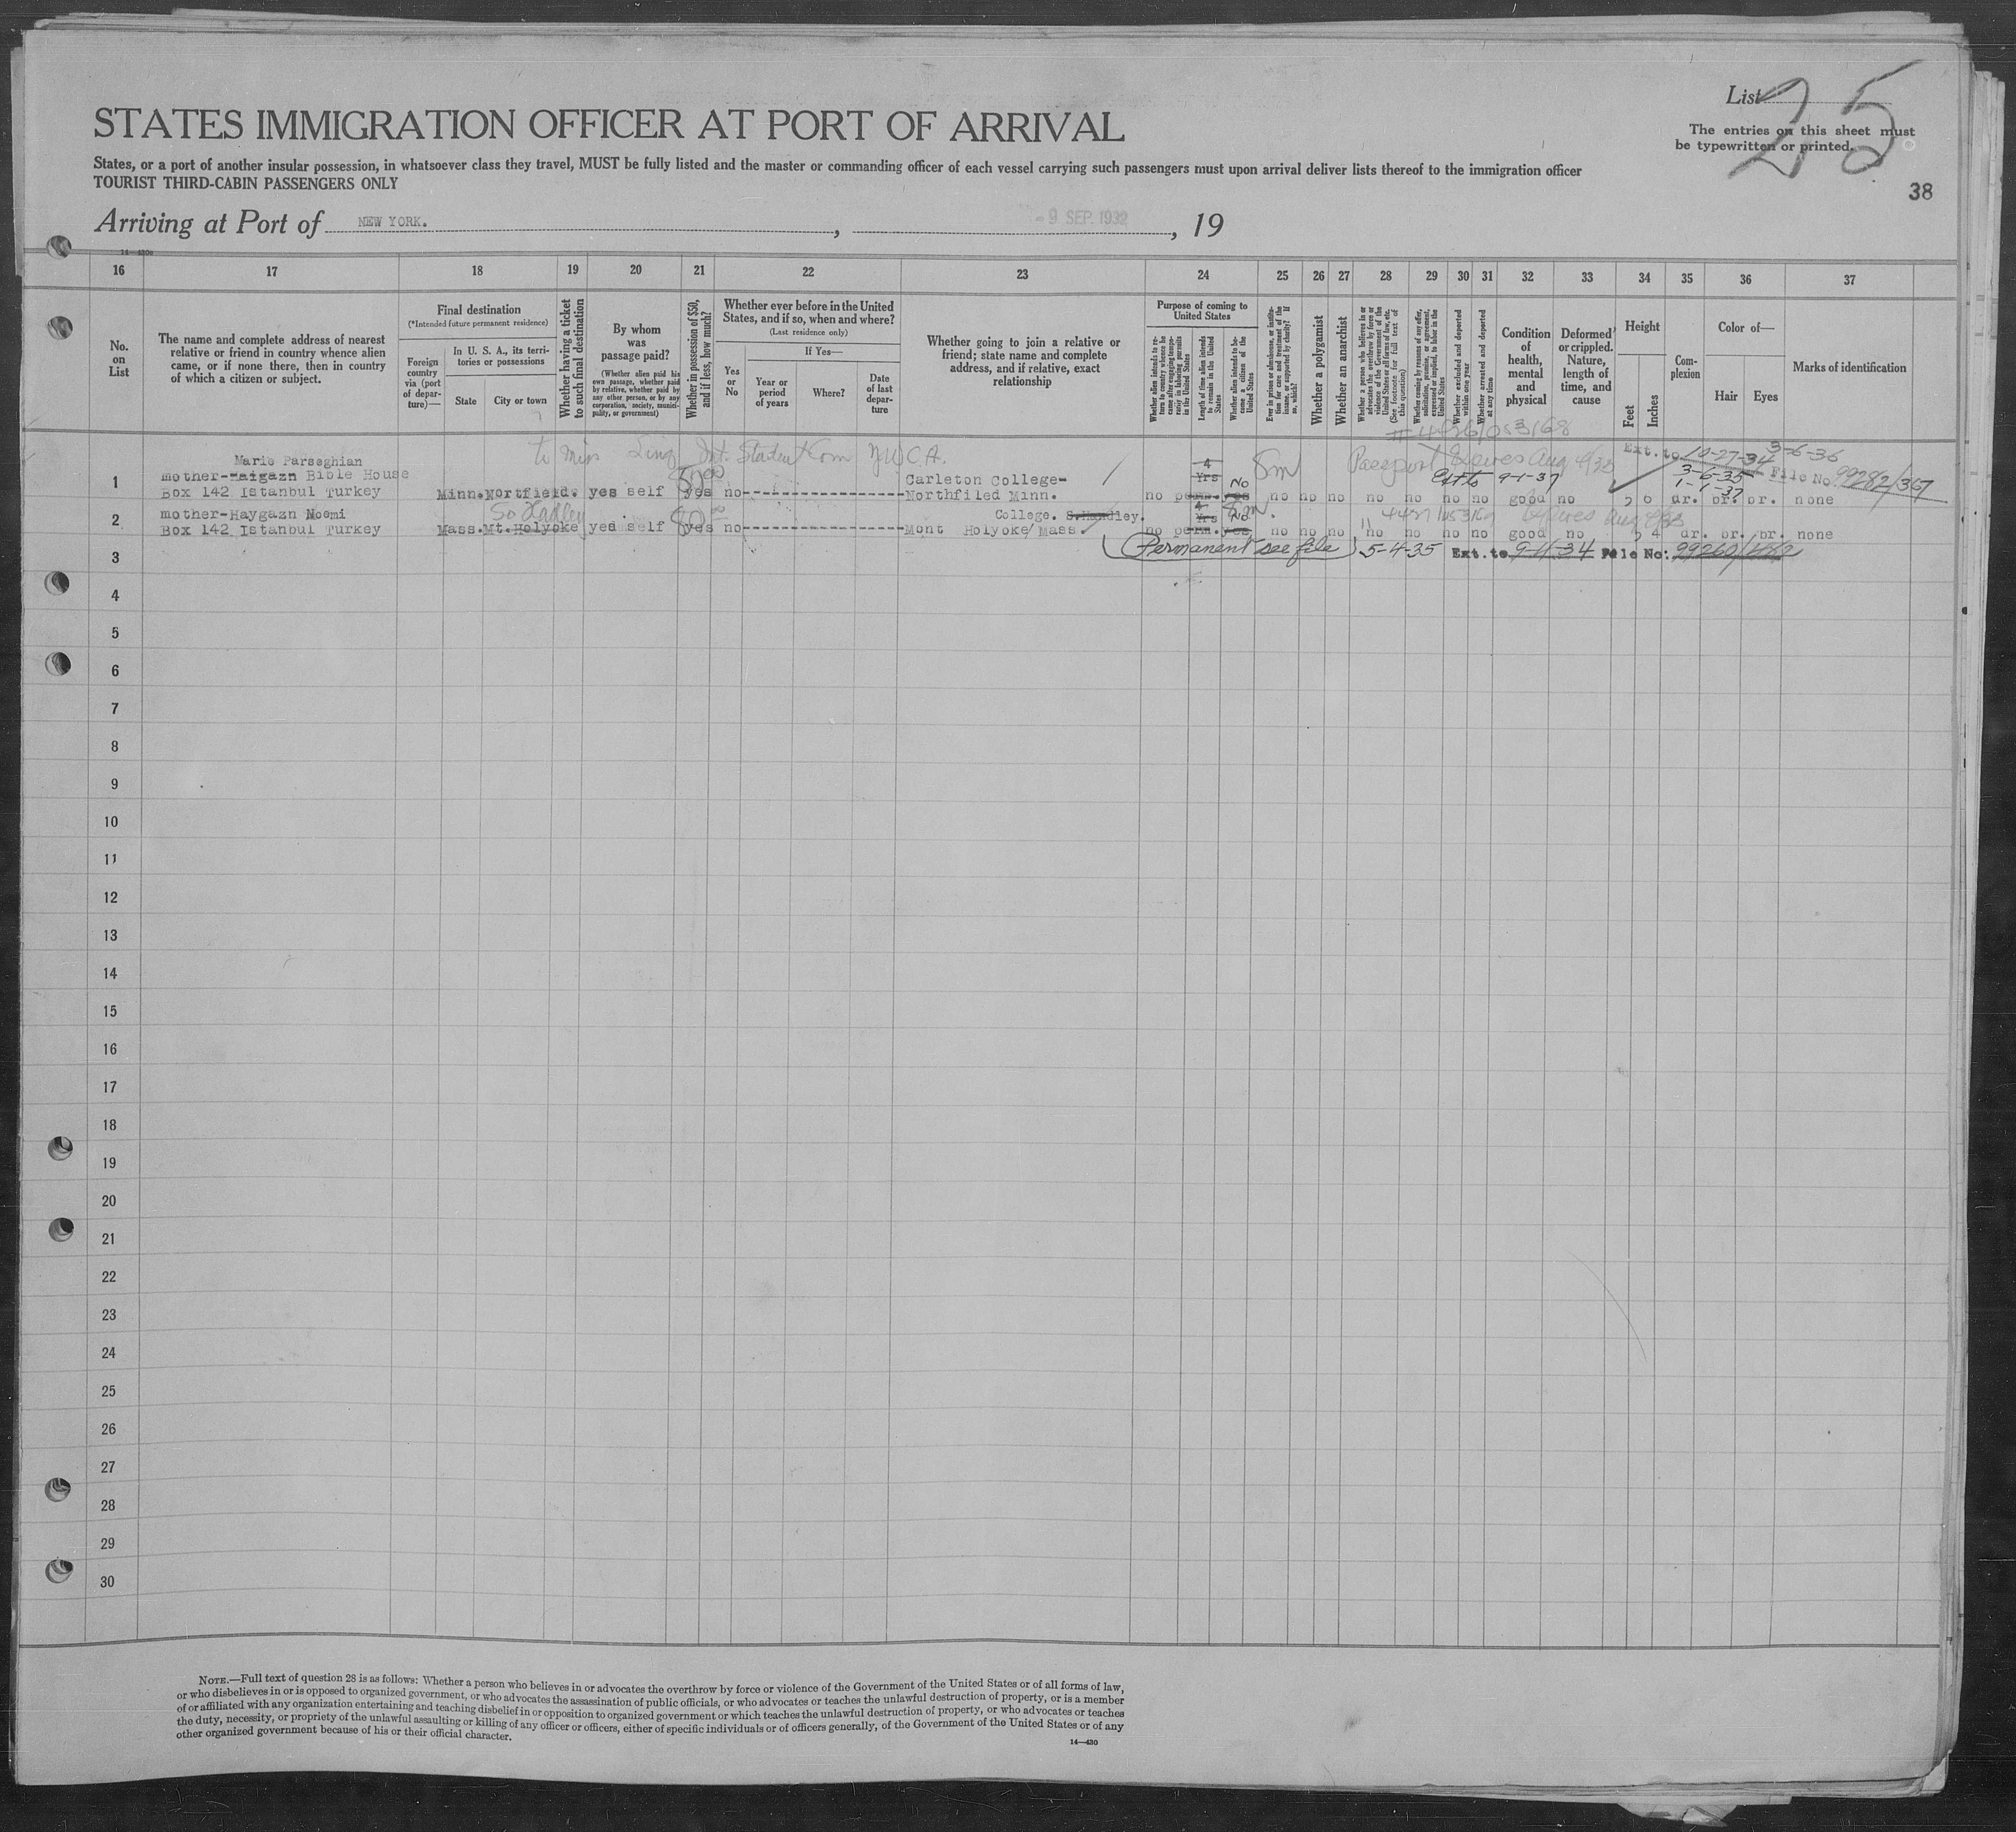 List 25
The entries on this sheet must
be typewritten or printed.
38
STATES IMMIGRATION OFFICER AT PORT OF ARRIVAL
States, or a port of another insular possession, in whatsoever class they travel, MUST be fully listed and the master or commanding officer of each vessel carrying such passengers must upon arrival deliver lists thereof to the immigration officer
TOURIST THIRD-CABIN PASSENGERS ONLY
Arriving at Port of NEW YORK. , -9 SEP. 1932 , 19
16 17 18 19 20 21 22 23 24 25 26 27 28 29 30 31 32 33 34 35 36 37
No.
on
List
The name and complete address of nearest
relative or friend in country whence alien
came, or if none there, then in country
of which a citizen or subject.
Final destination
(*Intended future permanent residence)
Foreign
country
via (port
of depar-
ture)—
In U. S. A., its terri-
tories or possessions
State
City or town
Whether having a ticket
to such final destination
By whom
was
passage paid?
(Whether alien paid his
own passage, whether paid
by relative, whether paid by
any other person, or by any
corporation, society, munici-
pality, or government)
Whether in possession of $50,
and if less, how much?
Whether ever before in the United
States, and if so, when and where?
(Last residence only)
Yes
or
No
If Yes—
Year or
period
of years
Where?
Date
of last
depar-
ture
Whether going to join a relative or
friend; state name and complete
address, and if relative, exact
relationship
Purpose of coming to
United States
Whether alien intends to re-
turn to country whence he
came after engaging tempo-
rarily in laboring pursuits
in the United States
Length of time alien intends
to remain in the United
States
Whether alien intends to be-
come a citizen of the
United States
Ever in prison or almshouse, or institu-
tion for care and treatment of the
insane, or supported by charity? If
so, which?
Whether a polygamist
Whether an anarchist
Whether a person who believes in or
advocates the overthrow by force or
violence of the Government of the
United States or all forms of law, etc.
(See footnote for full text of
this question)
Whether coming by reason of any offer,
solicitation, promise, or agreement,
expressed or implied, to labor in the
United States
Whether excluded and deported
within one year
Whether arrested and deported
at any time
Condition
of
health,
mental
and
physical
Deformed
or crippled.
Nature,
length of
time, and
cause
Height
Feet
Inches
Com-
plexion
Color of—
Hair
Eyes
Marks of identification
to Miss Student Com Y.W.C.A. Passport Expires Aug Ext. to 10-27-34 3-6-36
Marie Parseghian
1 mother-Haigazn Bible House Carleton College- 4 Yrs No 8m Ext to 9-1-37 3-6-35 File No. 99282/367
Box 142 Istanbul Turkey Minn. Nortfield. yes self yes no Northfiled Minn. no perm. yes no no no no no no no good no 5 6 dr. br. br. none
1-1-37
2 mother-Haygazn Noemi So Hadley College. S.Handley. 4 Yrs No 8m.
Box 142 Istanbul Turkey Mass. Mt. Holyoke yes self yes no Mont Holyoke Mass. no perm. yes no no no no no no no good no 5 4 dr. br. br. none
3 (Permanent see file) 5-4-35 Ext. to 9-4-34 File No:
4
5
6
7
8
9
10
11
12
13
14
15
16
17
18
19
20
21
22
23
24
25
26
27
28
29
30
NOTE.—Full text of question 28 is as follows: Whether a person who believes in or advocates the overthrow by force or violence of the Government of the United States or of all forms of law,
or who disbelieves in or is opposed to organized government, or who advocates the assassination of public officials, or who advocates or teaches the unlawful destruction of property, or is a member
of or affiliated with any organization entertaining and teaching disbelief in or opposition to organized government or which teaches the unlawful destruction of property, or who advocates or teaches
the duty, necessity, or propriety of the unlawful assaulting or killing of any officer or officers, either of specific individuals or of officers generally, of the Government of the United States or of any
other organized government because of his or their official character.
14—430